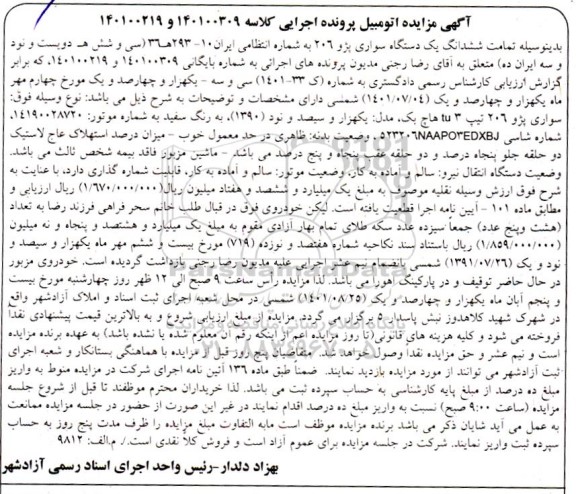 آگهی مزایده اتومبیل پرونده اجرایی کلاسه ۱۴۰۱۰۰۳۰۹ و ۱۴۰۱۰۰۲۱۹
بدینوسیله تمامت ششدانگ یک دستگاه سواری پژو ۲۰۶ به شماره انتظامی ایران۱۰- ۲۹۳هـ۳۶ (سی و شش هـ دویست و نود
و سه ایران ده) متعلق به آقای رضا رجنی مدیون پرونده های اجرائی به شماره بایگانی ۱۴۰۱۰۰۳۰۹ و ۱۴۰۱۰۰۲۱۹، که برابر
گزارش ارزیابی کارشناس رسمی دادگستری به شماره (ک ۳۳-۱۴۰۱) سی و سه - یکهزار و چهارصد و یک مورخ چهارم مهر
ماه یکهزار و چهارصد و یک (۱۴۰۱/۰۷/۰۴) شمسی دارای مشخصات و توضیحات به شرح ذیل می باشد: نوع وسیله فوق:
سواری پژو ۲۰۶ تیپ ۳ tu هاچ بک، مدل: یکهزار و سیصد و نود (۱۳۹۰)، به رنگ سفید به شماره موتور: ۱۴۱۹۰۰۲۸۷۲۰،
شماره شاسی ۵۲۳۲۰۶NAAP۰۳EDXBJ ، وضعیت بدنه: ظاهری در حد معمول خوب - میزان درصد استهلاک عاج لاستیک
دو حلقه جلو پنجاه درصد و دو حلقه عقب پنجاه و پنج درصد می باشد - ماشین مزبور فاقد بیمه شخص ثالث می باشد.
وضعیت دستگاه انتقال نیرو: سالم و آماده به کار، وضعیت موتور: سالم و آماده به کار، قابلیت شماره گذاری دارد، با عنایت به
شرح فوق ارزش وسیله نقلیه موصوف به مبلغ یک میلیارد و ششصد و هفتاد میلیون ریال(۱/۶۷۰/۰۰۰/۰۰۰) ریال ارزیابی و
مطابق ماده ۱۰۱ - آیین نامه اجرا قطعیت یافته است. لیکن خودروی فوق در قبال طلب خانم سحر فراهی فرزند رضا به تعداد
(هشت وپنج عدد) جمعاً سیزده عدد سکه طلای تمام بهار آزادی مقوم به مبلغ یک میلیارد و هشتصد و پنجاه و نه میلیون
(۱/۸۵۹/۰۰۰/۰۰۰) ریال باستناد سند نکاحیه شماره هفتصد و نوزده (۷۱۹) مورخ بیست و ششم مهر ماه یکهزار و سیصد و
نود و یک (۱۳۹۱/۰۷/۲۶) شمسی بانضمام نیم عشر اجرایی علیه مدیون رضا رجنی بازداشت گردیده است. خودروی مزبور
در حال حاضر توقیف و در پارکینگ اهورا می باشد. لذا مزایده رأس ساعت ۹ صبح الی ۱۲ ظهر روز چهارشنبه مورخ بیست
و پنجم آبان ماه یکهزار و چهارصد و یک (۱۴۰۱/۰۸/۲۵) شمسی در محل شعبه اجرای ثبت اسناد و املاک آزادشهر واقع
در شهرک شهید کلاهدوز نبش پاسدار ۵ برگزار می گردد. مزایده از مبلغ ارزیابی شروع و به بالاترین قیمت پیشنهادی نقدا
فروخته می شود و کلیه هزینه های قانونی (تا روز مزایده اعم از اینکه رقم آن معلوم شده یا نشده باشد) به عهده برنده مزایده
است و نیم عشر و حق مزایده نقدا وصول خواهد شد. متقاضیان پنج روز قبل از مزایده با هماهنگی بستانکار و شعبه اجرای
ثبت آزادشهر می توانند از مورد مزایده بازدید نمایند. ضمنا طبق ماده ۱۳۶ آئین نامه اجرای شرکت در مزایده منوط به واریز
مبلغ ده درصد از مبلغ پایه کارشناسی به حساب سپرده ثبت می باشد. لذا خریداران محترم موظفند تا قبل از شروع جلسه
مزایده (ساعت ۹:۰۰ صبح) نسبت به واریز مبلغ ده درصد اقدام نمایند در غیر این صورت از حضور در جلسه مزایده ممانعت
به عمل می آید شایان ذکر می باشد برنده مزایده موظف است مابه التفاوت مبلغ مزایده را ظرف مدت پنج روز به حساب
سپرده ثبت واریز نمایند. شرکت در جلسه مزایده برای عموم آزاد است و فروش کلاً نقدی است./. م.الف: ۹۸۱۲
بهزاد دلدار-رئیس واحد اجرای اسناد رسمی آزادشهر